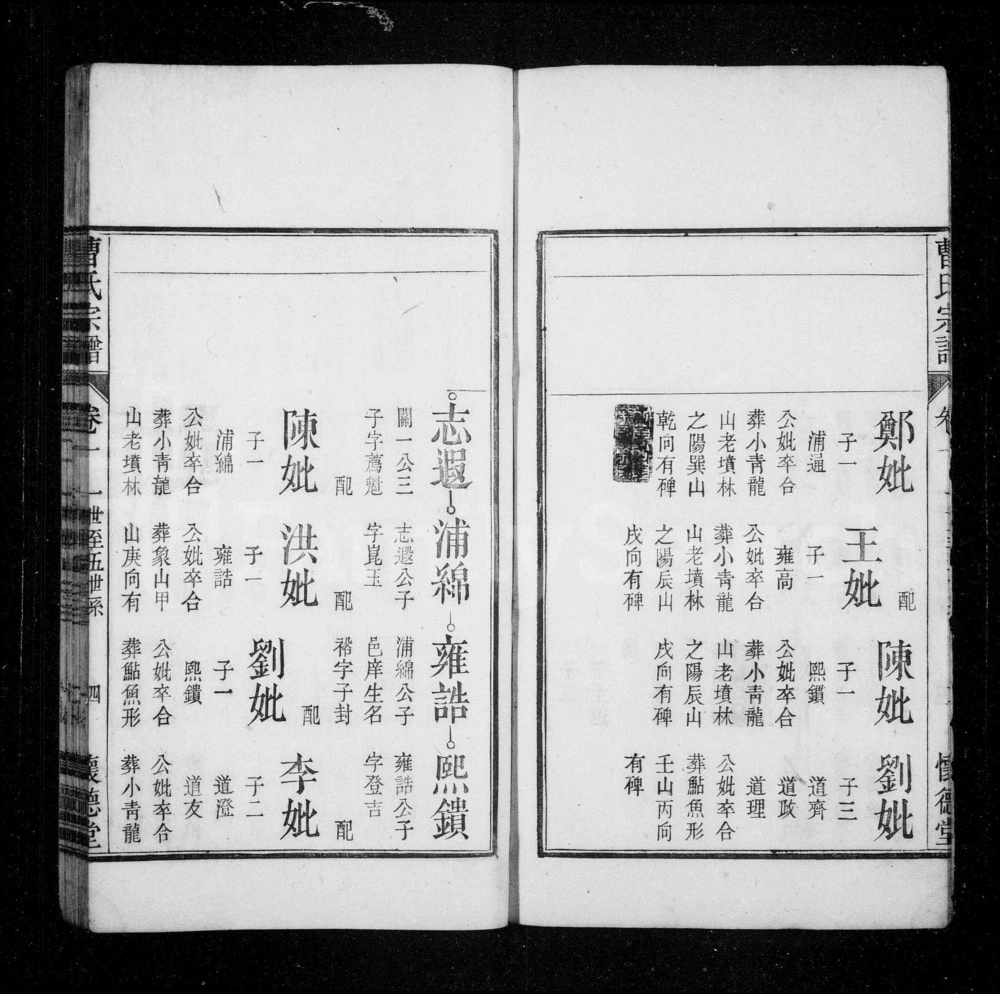 曹氏宗譜
懷德堂
鄭妣
子一
浦通
公妣卒合
葬小青龍
山老墳林
之陽巽山
乾向有碑
配
王妣
子一
雍高
公妣卒合
葬小青龍
山老墳林
之陽辰山
戌向有碑
陳妣
子一
熙鎖
公妣卒合
葬小青龍
山老墳林
之陽辰山
戌向有碑
劉妣
子三
道齊
道政
道理
公妣卒合
葬鮎魚形
壬山丙向
有碑
志遐
關一公三
子字薦魁
配
陳妣
子一
浦綿
公妣卒合
葬小青龍
山老墳林
浦綿
志遐公子
字崑玉
配
洪妣
子一
雍誥
公妣卒合
葬象山甲
山庚向有
雍誥
浦綿公子
邑庠生名
裕字子封
配
劉妣
子一
熙鐀
公妣卒合
葬鮎魚形
熙鐀
雍誥公子
字登吉
配
李妣
子二
道澄
道友
公妣卒合
葬小青龍
曹氏宗譜
卷一
一世至五世系
四
懷德堂